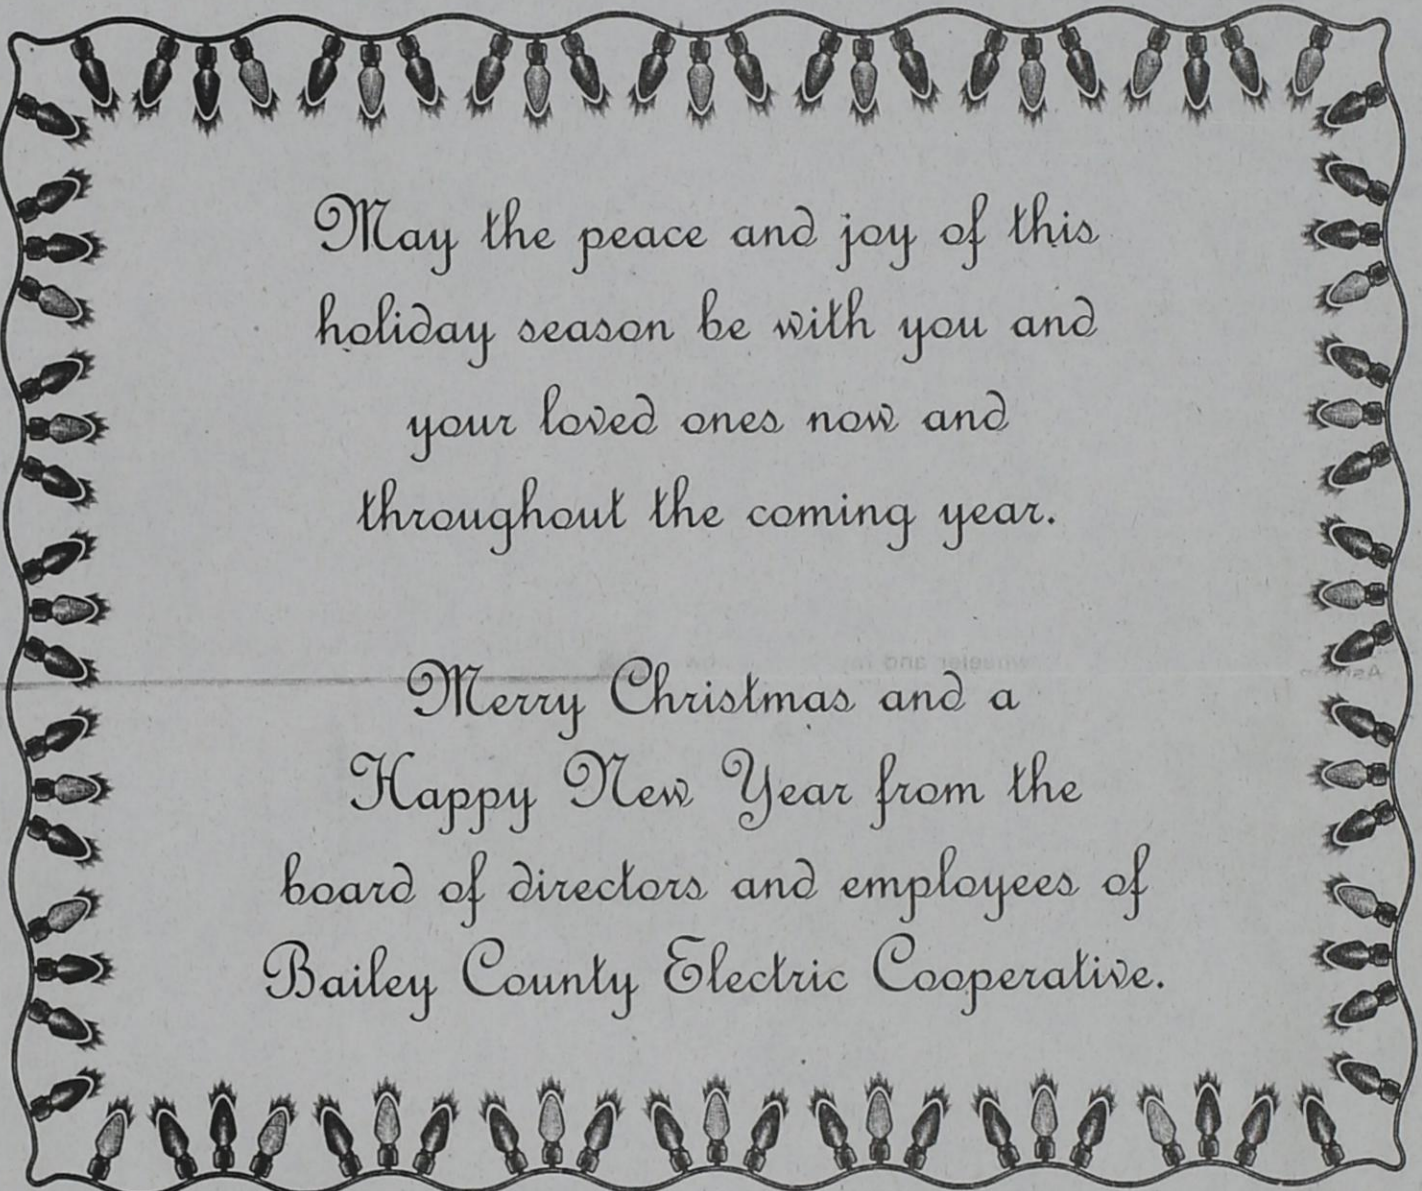 May the peace and joy of this
holiday season be with you and
your loved ones now and
throughout the coming year.
Merry Christmas and a
Happy New Year from the
board of directors and employees of
Bailey County Electric Cooperative.